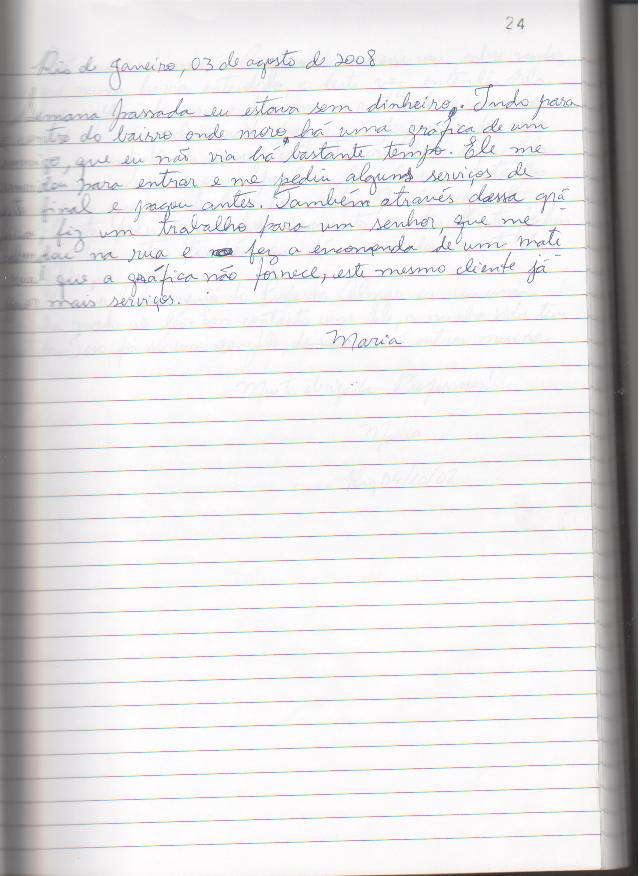 24
Rio de Janeiro, 03 de agosto de 2008
Semana passada eu estava sem dinheiro. Indo para
centro do bairro onde moro, há uma gráfica de um
amigo, que eu não via há bastante tempo. Ele me
para entrar e me pediu alguns serviços de
final e pagou antes. Também através dessa grá
fiz um trabalho para um senhor, que me
na rua e fez a encomenda de um mate
que, a gráfica não fornece, este mesmo cliente já
mais serviços.
Maria